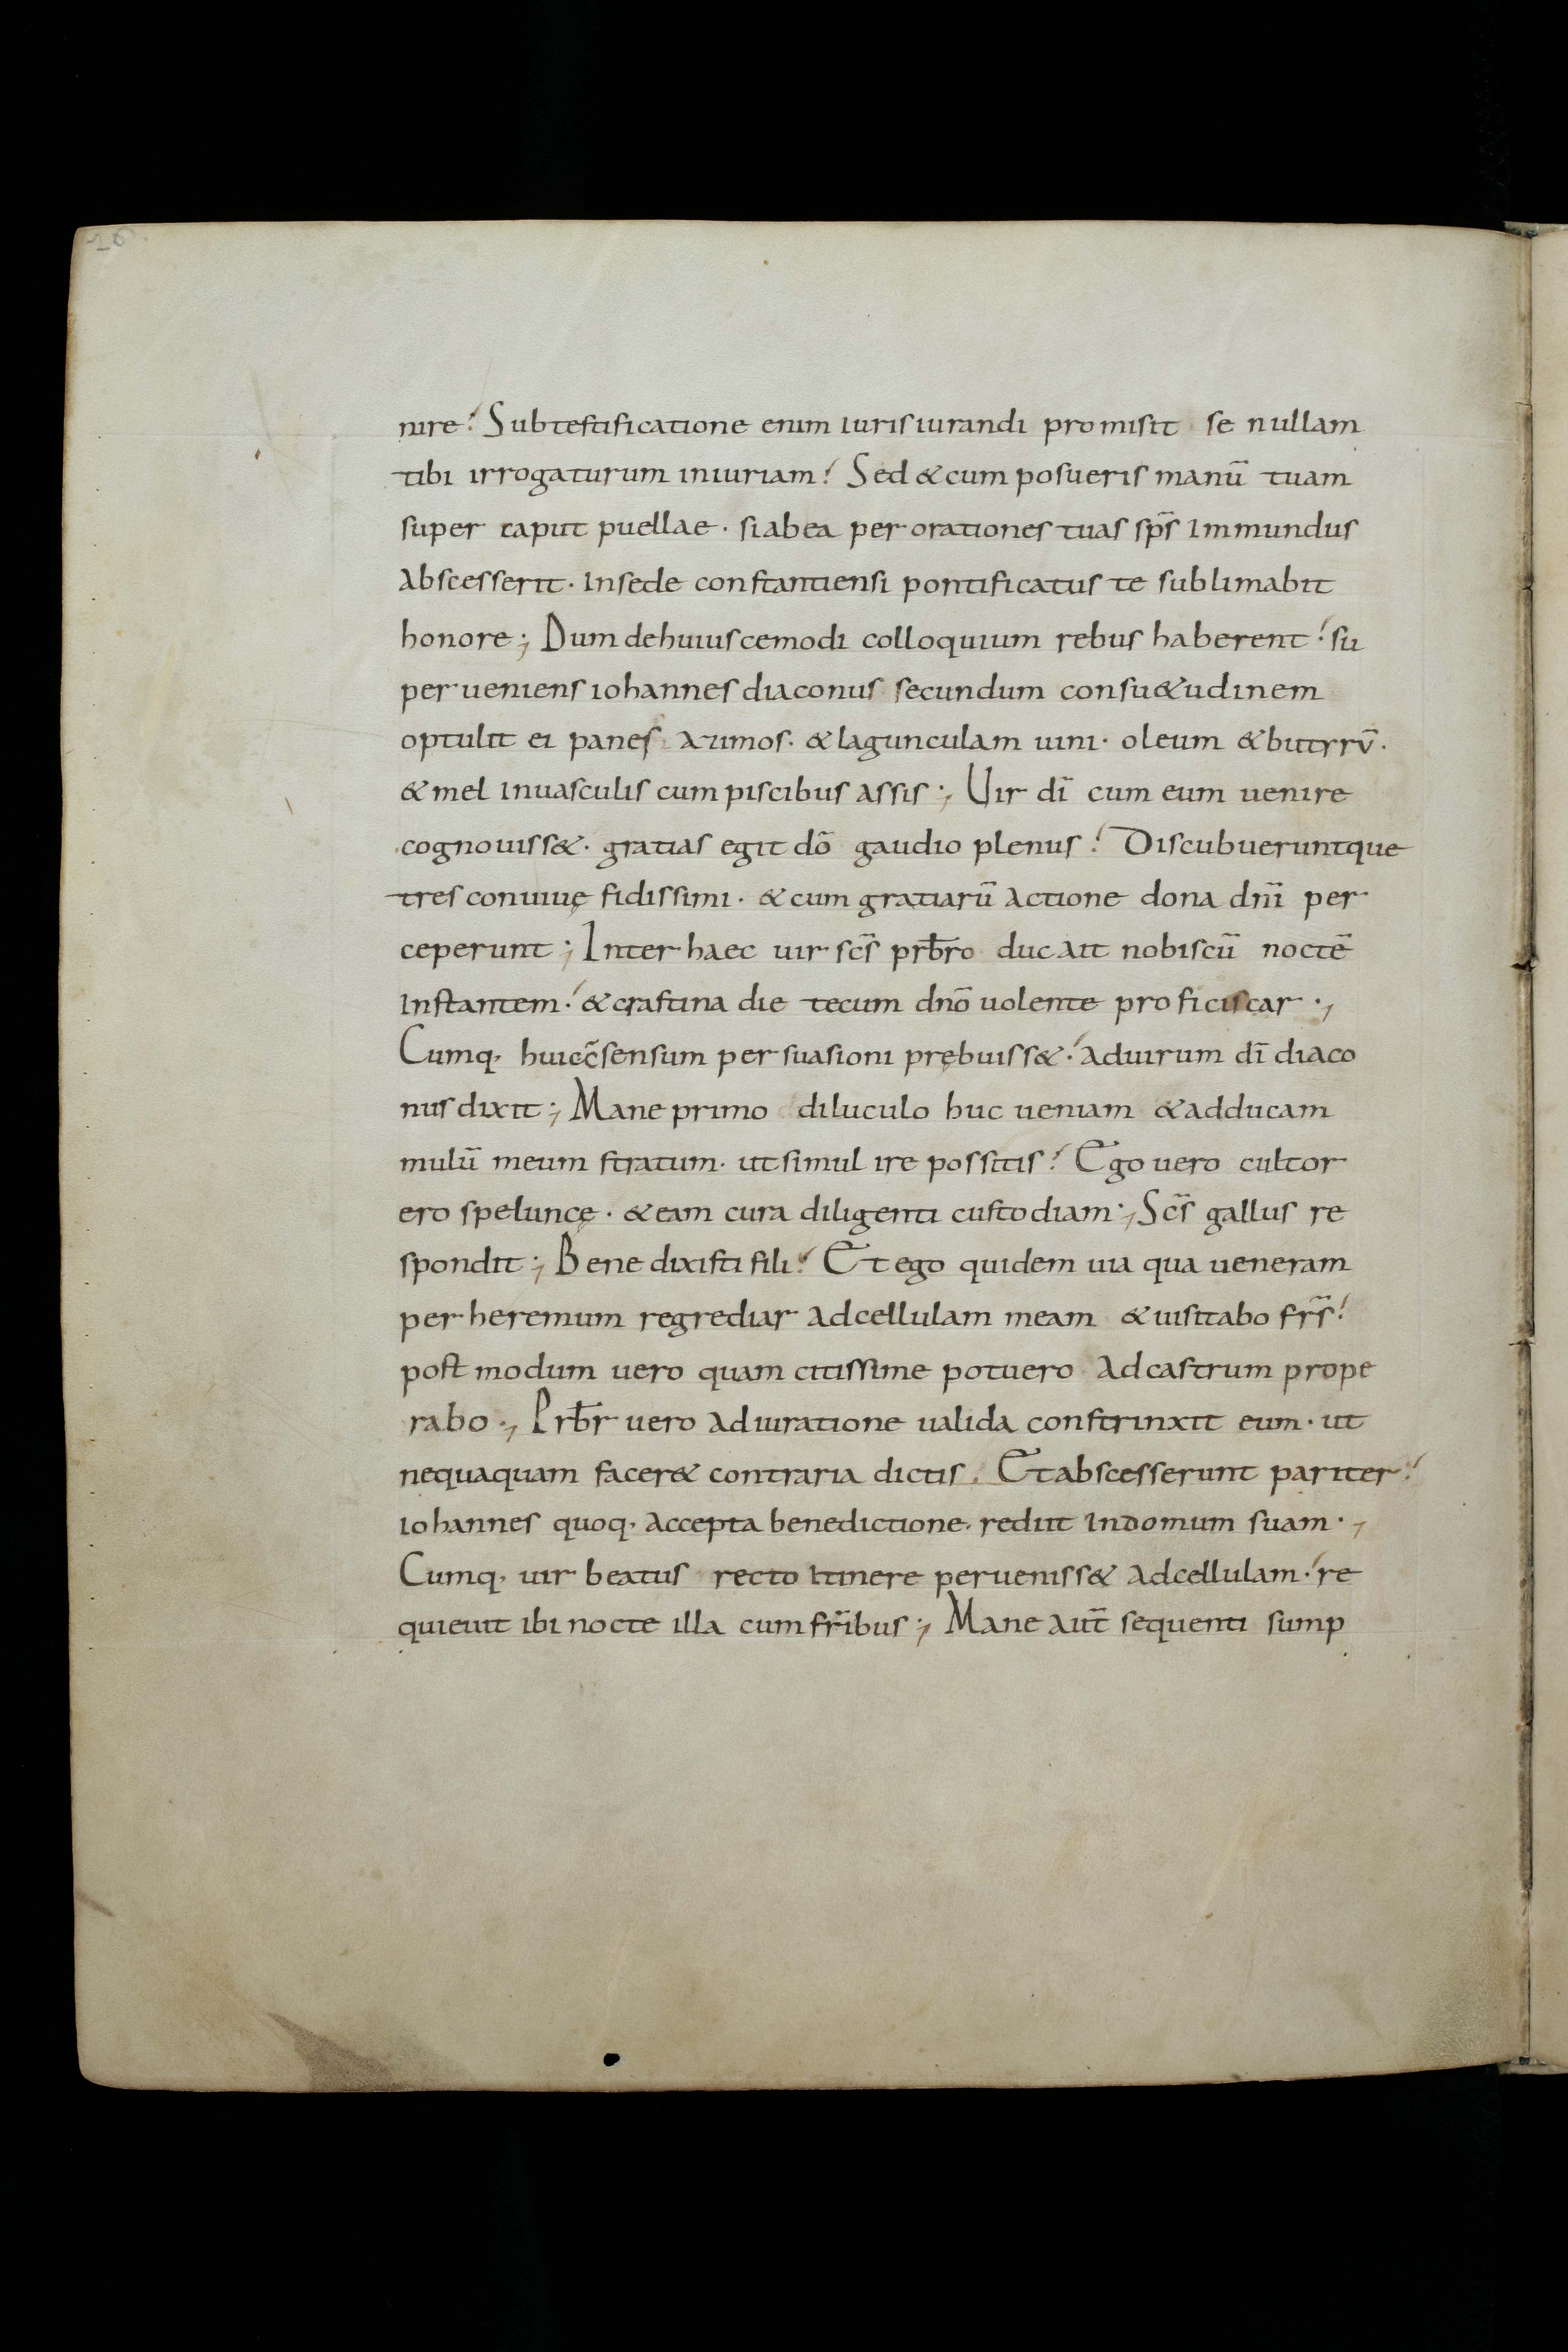 26
nire; Sub testificatione enim iurisiurandi promisit se nullam
tibi irrogaturum iniuriam; Sed & cum posueris manū tuam
super caput puellae · si ab ea per orationes tuas sp̄s immundus
abscesserit · in sede constantiensi pontificatus te sublimabit
honore ; Dum de huiuscemodi colloquium rebus haberent; su
perueniens iohannes diaconus secundum consu&udinem
optulit ei panes azimos · & lagunculam uini · oleum & bityrū ·
& mel in uasculis cum piscibus assis ; Uir dī cum eum uenire
cognouiss& · gratias egit dō gaudio plenus; Discubueruntque
tres conuiuę fidissimi · & cum gratiarū actione dona dn̄i per
ceperunt ; Inter haec uir sc̄s prb̄ro duc ait nobiscū noctē
instantem; & crastina die tecum dn̄o uolente proficiscar ;
Cumq· huic c̄sensum persuasioni prębuiss&; ad uirum dī diaco
nus dixit ; Mane primo diluculo huc ueniam & adducam
mulū meum stratum · ut simul ire possitis; Ego uero cultor
ero speluncę · & eam cura diligenti custodiam ; Sc̄s gallus re
spondit ; Bene dixisti fili; Et ego quidem uia qua ueneram
per heremum regrediar ad cellulam meam & uisitabo fr̄s;
postmodum uero quam citissime potuero ad castrum prope
rabo ; Prb̄r uero adiuratione ualida constrinxit eum · ut
nequaquam facer& contraria dictis. Et abscesserunt pariter;
iohannes quoq· accepta benedictione · rediit in domum suam ;
Cumq· uir beatus recto itinere perueniss& ad cellulam; re
quieuit ibi nocte illa cum fr̄ibus ; Mane aut̄ sequenti sump